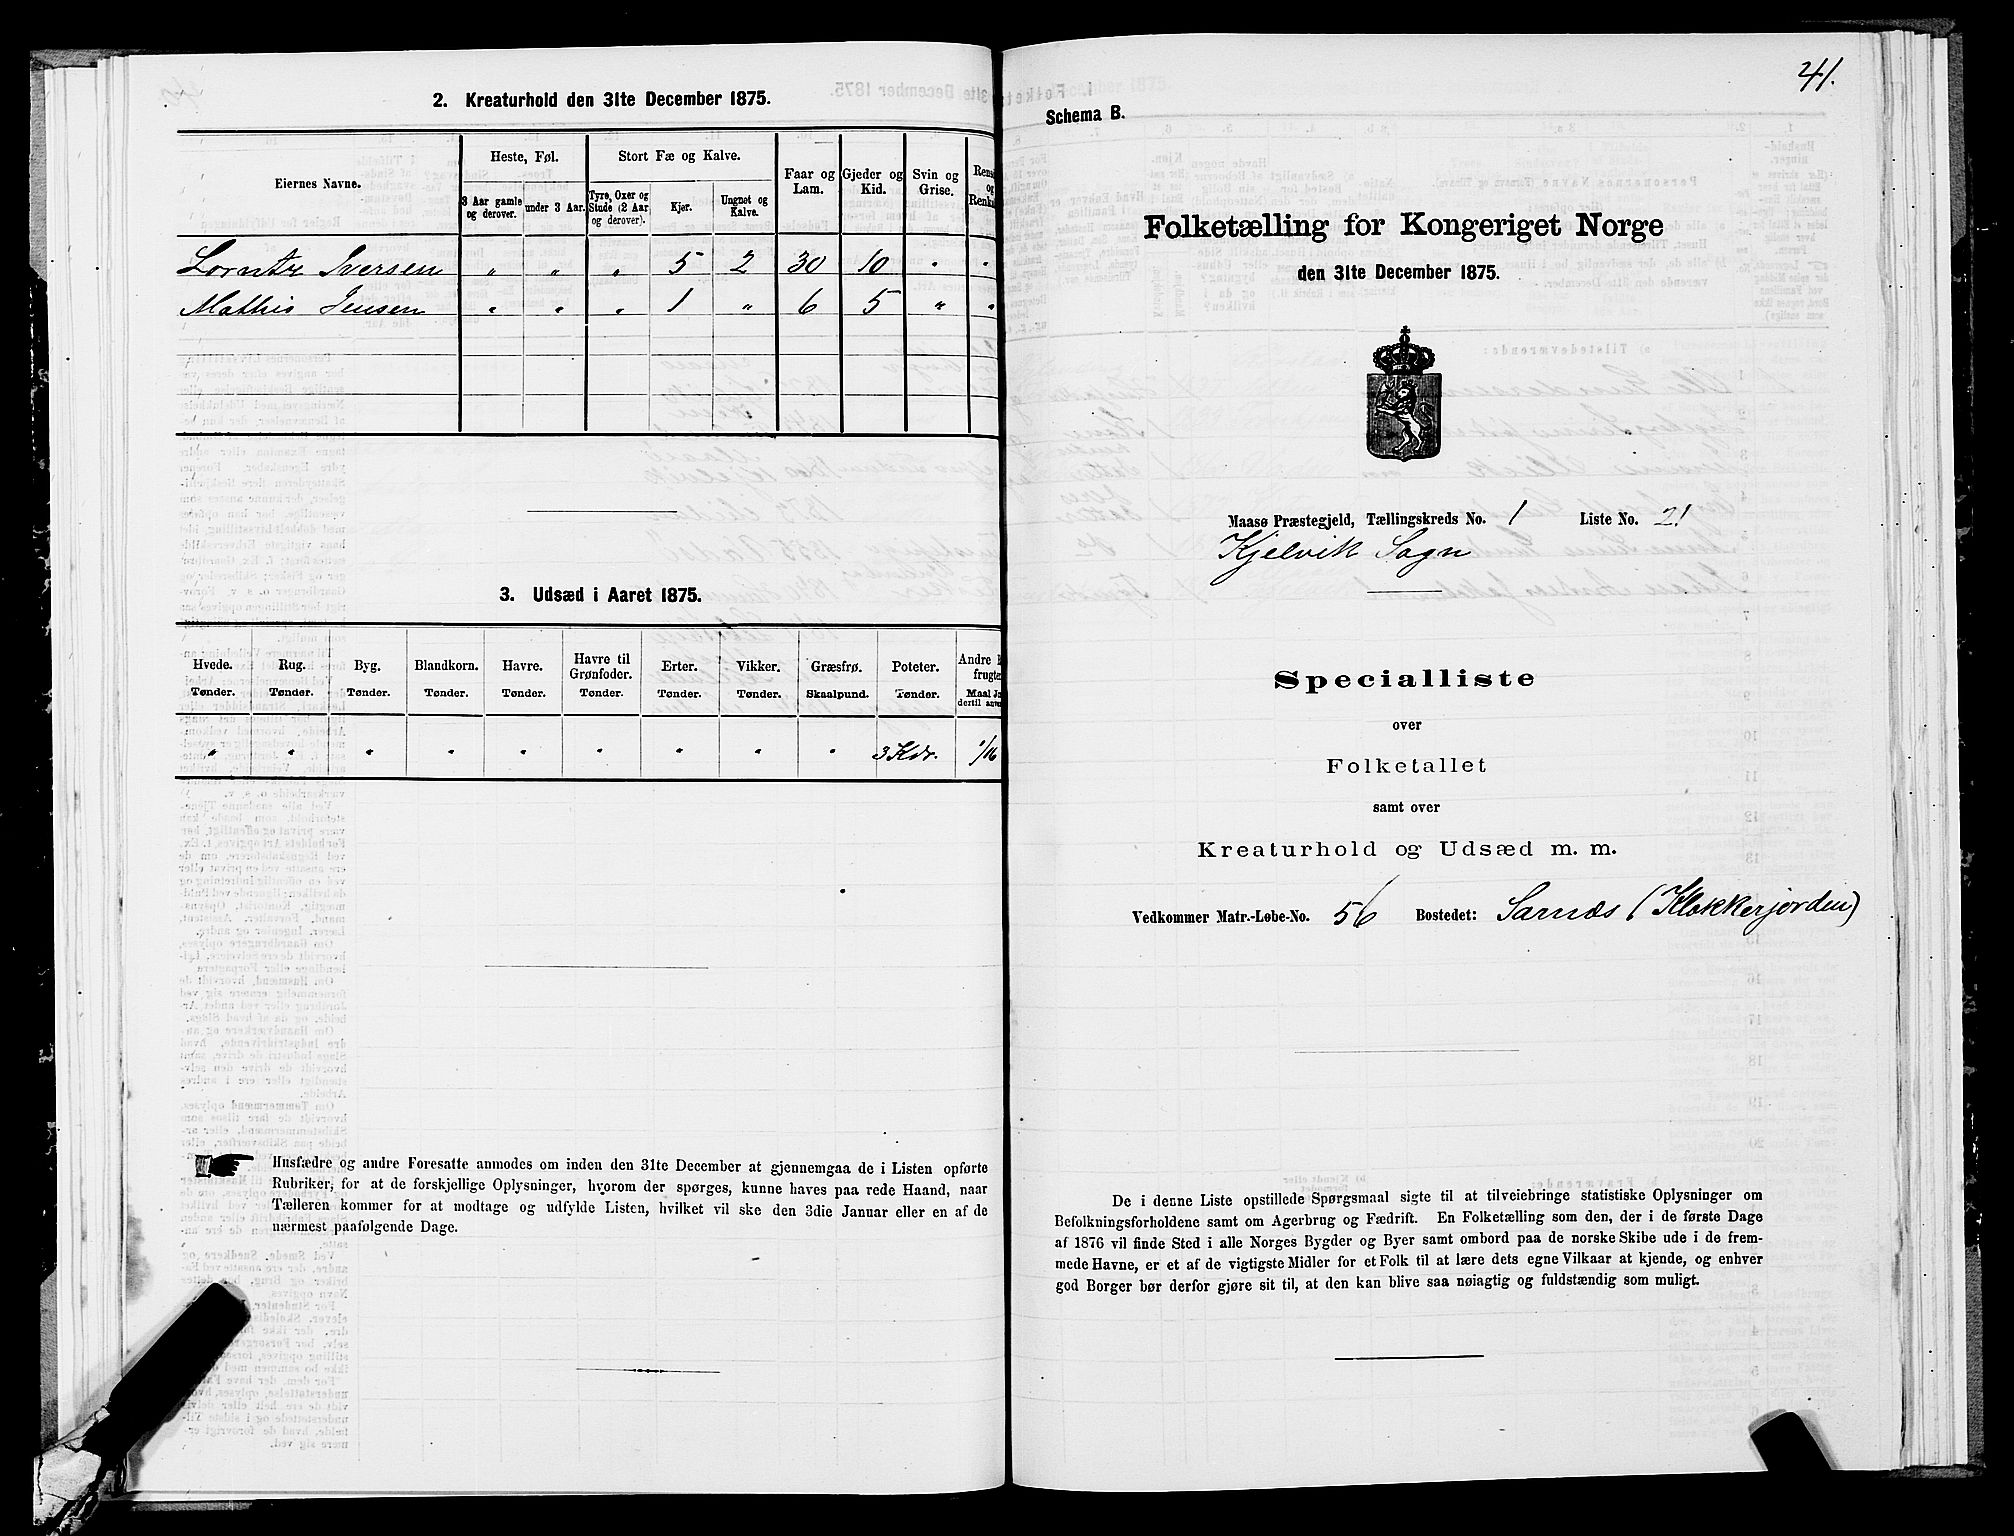 2. Kreaturhold den 31te December 1875.
Eiernes Navne.
Heste, Føl.
Stort Fæ og Kalve.
Faar og Lam.
Gjeder og Kid.
Svin og Grise.
3 Aar gamle og derover.
under 3 Aar.
Tyre, Oxer og Stude (2 Aar og derover).
Kjør.
Ungnøt og Kalve.
Lorntz Iversen " " " 5 2 30 10 " "
Mathis Jensen " " " 1 " 6 5 " "
3. Udsæd i Aaret 1875.
Hvede. Rug. Byg. Blandkorn. Havre. Havre til Grønfoder. Erter. Vikker. Græsfrø. Poteter. Andre
Tønder. Tønder. Tønder. Tønder. Tønder. Tønder. Tønder. Tønder. Skaalpund. Tønder. Maal
" " " " " " " " " 3 Kdr. 1/16
Husfædre og andre Foresatte anmodes om inden den 31te December at gjennemgaa de i Listen opførte
Rubriker, for at de forskjellige Oplysninger, hvorom der spørges, kunne haves paa rede Haand, naar
Tælleren kommer for at modtage og udfylde Listen, hvilket vil ske den 3die Januar eller en af de
nærmest paafølgende Dage.
41.
Schema B.
Folketælling for Kongeriget Norge
den 31te December 1875.
Maasø Præstegjeld, Tællingskreds No. 1 Liste No. 21
Kjelvik Sogn
Specialliste
over
Folketallet
samt over
Kreaturhold og Udsæd m. m.
Vedkommer Matr.-Løbe-No. 56 Bostedet: Sarnæs (Klokkerjorden)
De i denne Liste opstillede Spørgsmaal sigte til at tilveiebringe statistiske Oplysninger om
Befolkningsforholdene samt om Agerbrug og Fædrift. En Folketælling som den, der i de første Dage
af 1876 vil finde Sted i alle Norges Bygder og Byer samt ombord paa de norske Skibe ude i de frem-
mede Havne, er et af de vigtigste Midler for et Folk til at lære dets egne Vilkaar at kjende, og enhver
god Borger bør derfor gjøre sit til, at den kan blive saa nøiagtig og fuldstændig som muligt.